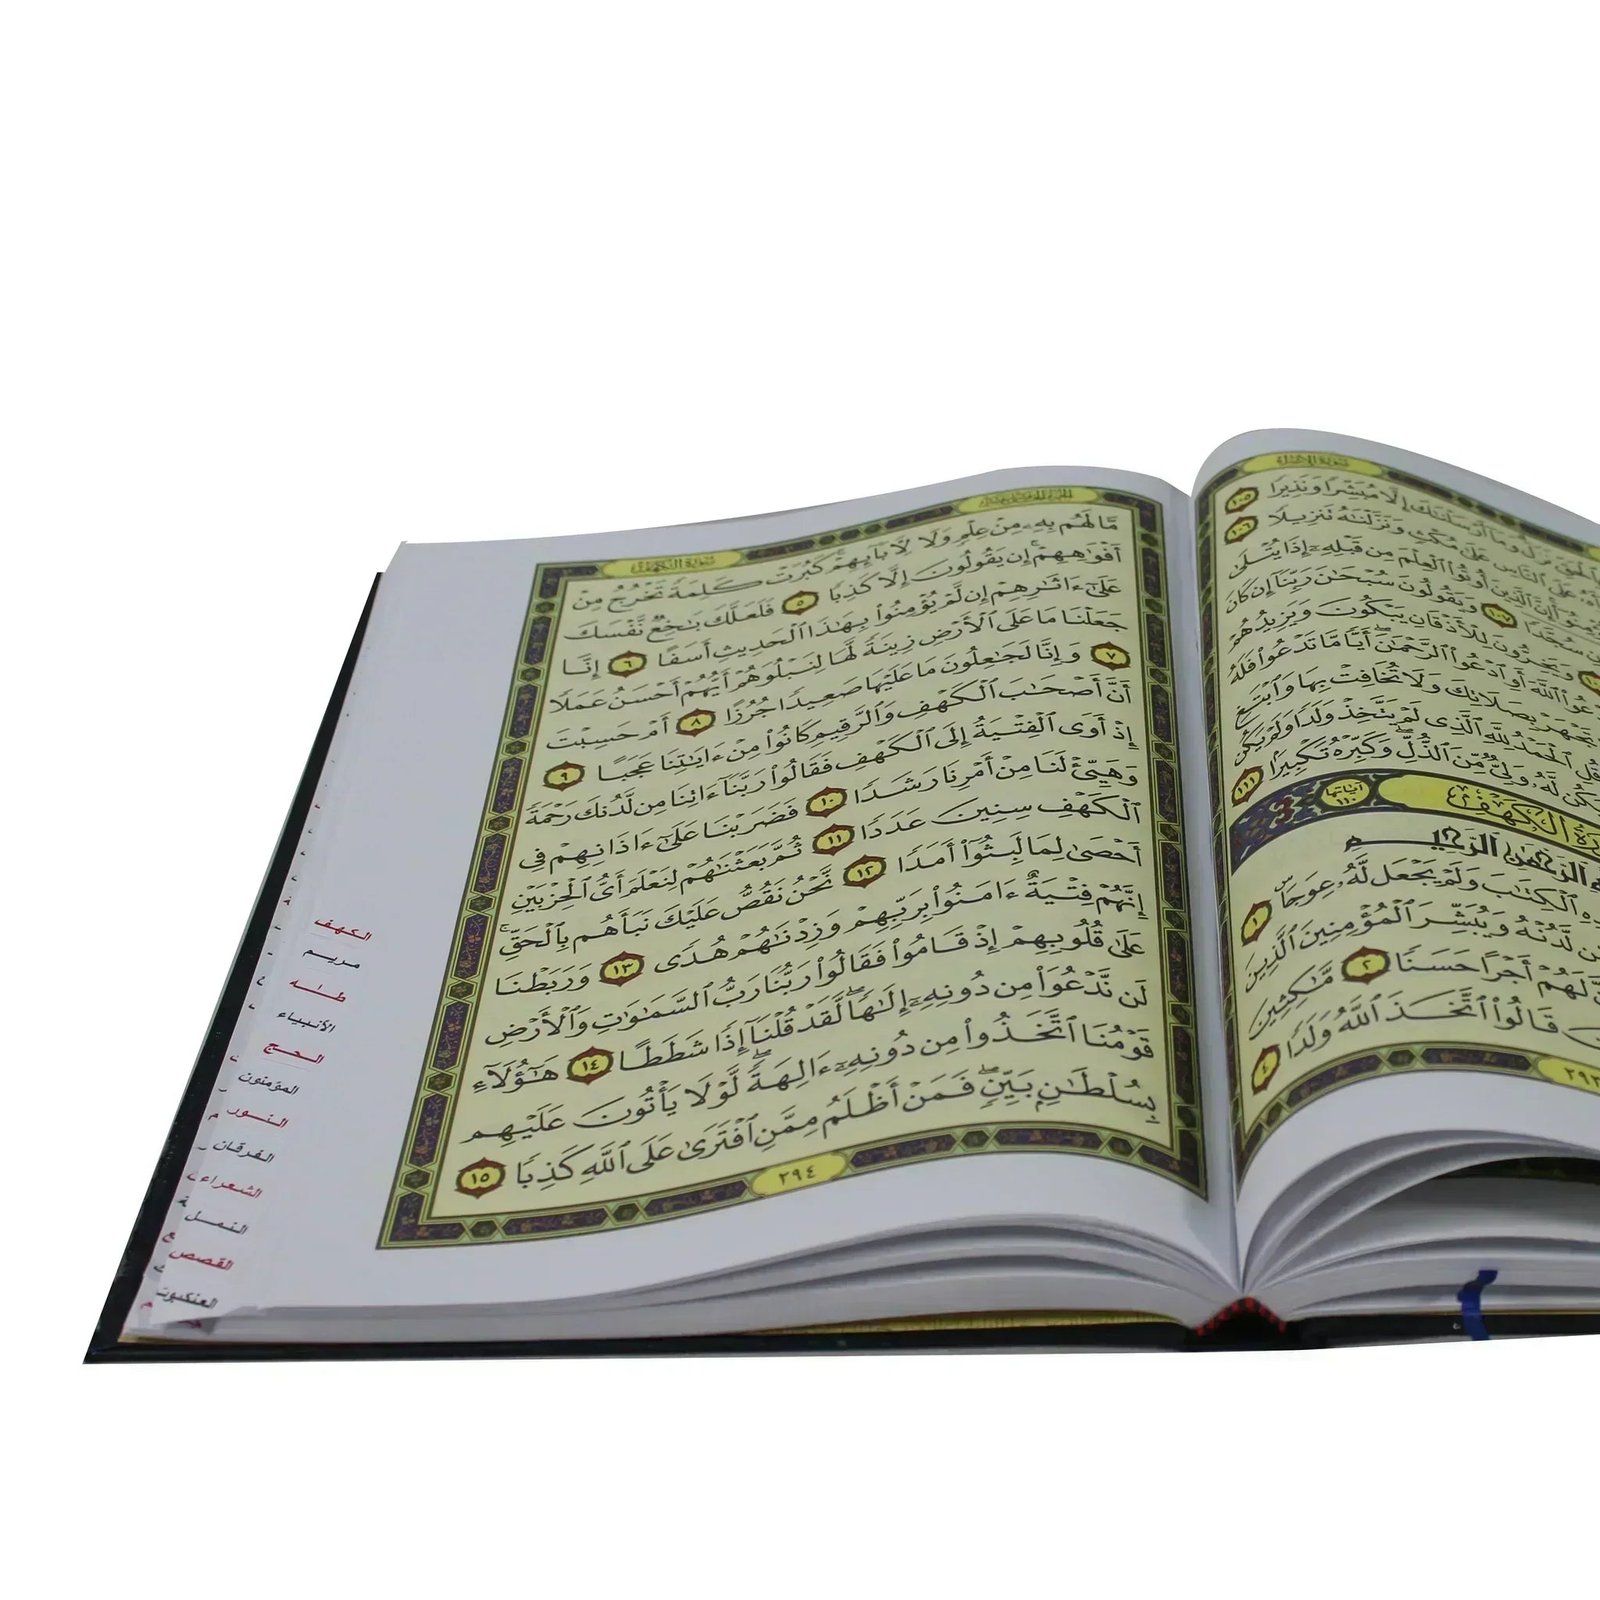 سورة الإسراء
نَزَلَ وَمَآ أَرْسَلْنَٰكَ إِلَّا مُبَشِّرًا وَنَذِيرًا ١٠٥
عَلَى ٱلنَّاسِ عَلَىٰ مُكْثٍ وَنَزَّلْنَٰهُ تَنزِيلًا ١٠٦
إِنَّ ٱلَّذِينَ أُوتُوا۟ ٱلْعِلْمَ مِن قَبْلِهِۦٓ إِذَا يُتْلَىٰ
سُجَّدًا ١٠٧ وَيَقُولُونَ سُبْحَٰنَ رَبِّنَآ إِن كَانَ
وَيَخِرُّونَ لِلْأَذْقَانِ يَبْكُونَ وَيَزِيدُهُمْ
ٱللَّهَ أَوِ ٱدْعُوا۟ ٱلرَّحْمَٰنَ أَيًّا مَّا تَدْعُوا۟ فَلَهُ
تَجْهَرْ بِصَلَاتِكَ وَلَا تُخَافِتْ بِهَا وَٱبْتَغِ
ٱلْحَمْدُ لِلَّهِ ٱلَّذِى لَمْ يَتَّخِذْ وَلَدًا وَلَمْ يَكُن
لَّهُۥ وَلِىٌّ مِّنَ ٱلذُّلِّ وَكَبِّرْهُ تَكْبِيرًا ١١١
الكهف آياتها ١١٠
ٱلرَّحْمَٰنِ ٱلرَّحِيمِ
ٱلْكِتَٰبَ وَلَمْ يَجْعَل لَّهُۥ عِوَجَا ١
لَّدُنْهُ وَيُبَشِّرَ ٱلْمُؤْمِنِينَ ٱلَّذِينَ
لَهُمْ أَجْرًا حَسَنًا ٢ مَّٰكِثِينَ
قَالُوا۟ ٱتَّخَذَ ٱللَّهُ وَلَدًا ٤
٢٩٣
الجزء الخامس عشر
سورة الكهف
مَّا لَهُم بِهِۦ مِنْ عِلْمٍ وَلَا لِـَٔابَآئِهِمْ كَبُرَتْ كَلِمَةً تَخْرُجُ مِنْ
أَفْوَٰهِهِمْ إِن يَقُولُونَ إِلَّا كَذِبًا ٥ فَلَعَلَّكَ بَٰخِعٌ نَّفْسَكَ
عَلَىٰٓ ءَاثَٰرِهِمْ إِن لَّمْ يُؤْمِنُوا۟ بِهَٰذَا ٱلْحَدِيثِ أَسَفًا ٦ إِنَّا
جَعَلْنَا مَا عَلَى ٱلْأَرْضِ زِينَةً لَّهَا لِنَبْلُوَهُمْ أَيُّهُمْ أَحْسَنُ عَمَلًا
٧ وَإِنَّا لَجَٰعِلُونَ مَا عَلَيْهَا صَعِيدًا جُرُزًا ٨ أَمْ حَسِبْتَ
أَنَّ أَصْحَٰبَ ٱلْكَهْفِ وَٱلرَّقِيمِ كَانُوا۟ مِنْ ءَايَٰتِنَا عَجَبًا ٩
إِذْ أَوَى ٱلْفِتْيَةُ إِلَى ٱلْكَهْفِ فَقَالُوا۟ رَبَّنَآ ءَاتِنَا مِن لَّدُنكَ رَحْمَةً
وَهَيِّئْ لَنَا مِنْ أَمْرِنَا رَشَدًا ١٠ فَضَرَبْنَا عَلَىٰٓ ءَاذَانِهِمْ فِى
ٱلْكَهْفِ سِنِينَ عَدَدًا ١١ ثُمَّ بَعَثْنَٰهُمْ لِنَعْلَمَ أَىُّ ٱلْحِزْبَيْنِ
أَحْصَىٰ لِمَا لَبِثُوٓا۟ أَمَدًا ١٢ نَّحْنُ نَقُصُّ عَلَيْكَ نَبَأَهُم بِٱلْحَقِّ
إِنَّهُمْ فِتْيَةٌ ءَامَنُوا۟ بِرَبِّهِمْ وَزِدْنَٰهُمْ هُدًى ١٣ وَرَبَطْنَا
عَلَىٰ قُلُوبِهِمْ إِذْ قَامُوا۟ فَقَالُوا۟ رَبُّنَا رَبُّ ٱلسَّمَٰوَٰتِ وَٱلْأَرْضِ
لَن نَّدْعُوَا۟ مِن دُونِهِۦٓ إِلَٰهًا لَّقَدْ قُلْنَآ إِذًا شَطَطًا ١٤ هَٰٓؤُلَآءِ
قَوْمُنَا ٱتَّخَذُوا۟ مِن دُونِهِۦٓ ءَالِهَةً لَّوْلَا يَأْتُونَ عَلَيْهِم
بِسُلْطَٰنٍۭ بَيِّنٍ فَمَنْ أَظْلَمُ مِمَّنِ ٱفْتَرَىٰ عَلَى ٱللَّهِ كَذِبًا ١٥
٢٩٤
الكهف
مريم
طه
الأنبياء
الحج
المؤمنون
النور
الفرقان
الشعراء
النمل
القصص
العنكبوت